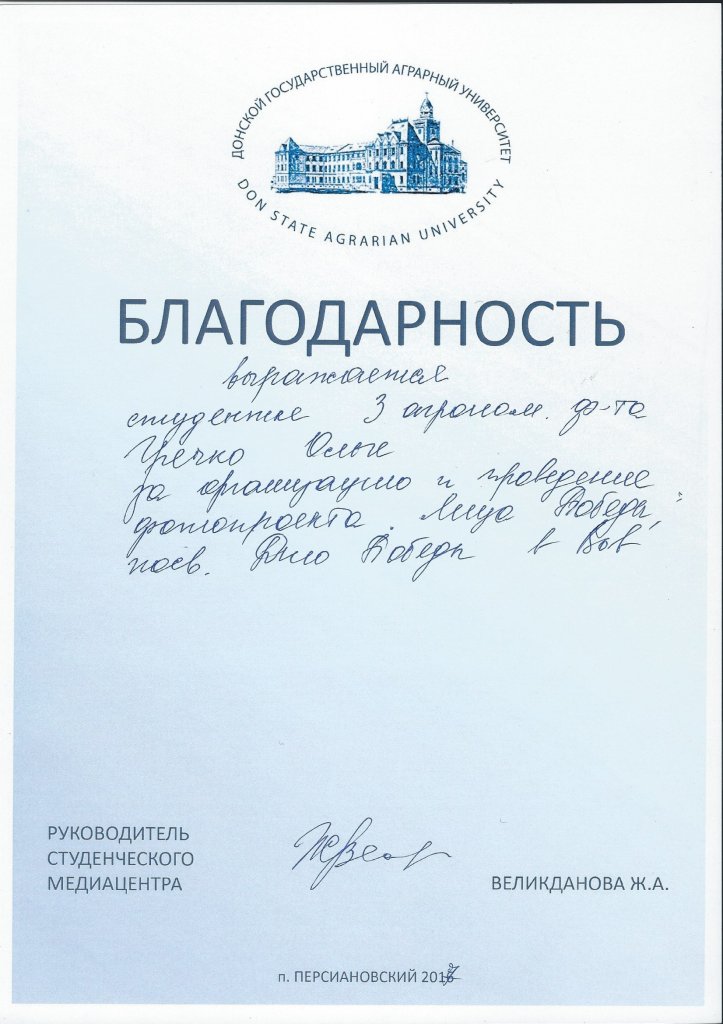 ДОНСКОЙ ГОСУДАРСТВЕННЫЙ АГРАРНЫЙ УНИВЕРСИТЕТ
DON STATE AGRARIAN UNIVERSITY
БЛАГОДАРНОСТЬ
выражается
студентке 3 агроном. ф-та
Гречко Ольге
за организацию и проведение
фотопроекта "Лица Победы"
посв. Дню Победы в Вов
РУКОВОДИТЕЛЬ
СТУДЕНЧЕСКОГО
МЕДИАЦЕНТРА
ВЕЛИКДАНОВА Ж.А.
п. ПЕРСИАНОВСКИЙ 2017